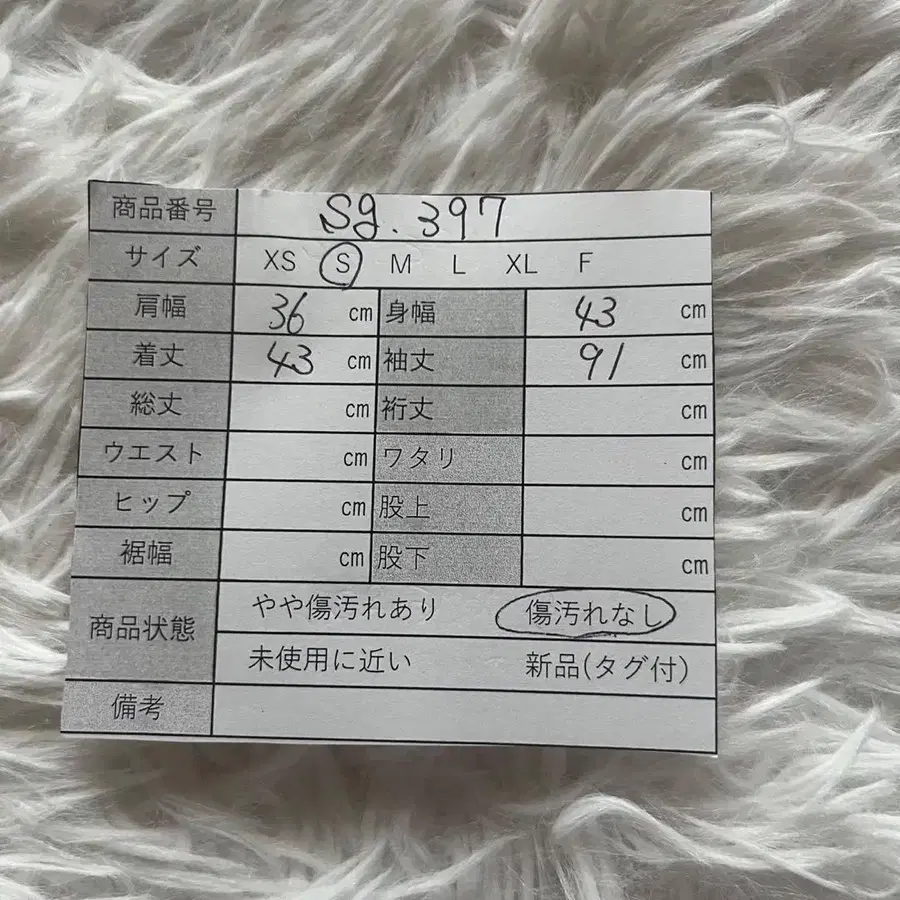 商品番号 Sg.397
サイズ XS S M L XL F
肩幅 36 cm 身幅 43 cm
着丈 43 cm 袖丈 91 cm
総丈 cm 裄丈 cm
ウエスト cm ワタリ cm
ヒップ cm 股上 cm
裾幅 cm 股下 cm
商品状態 やや傷汚れあり 傷汚れなし
未使用に近い 新品(タグ付)
備考